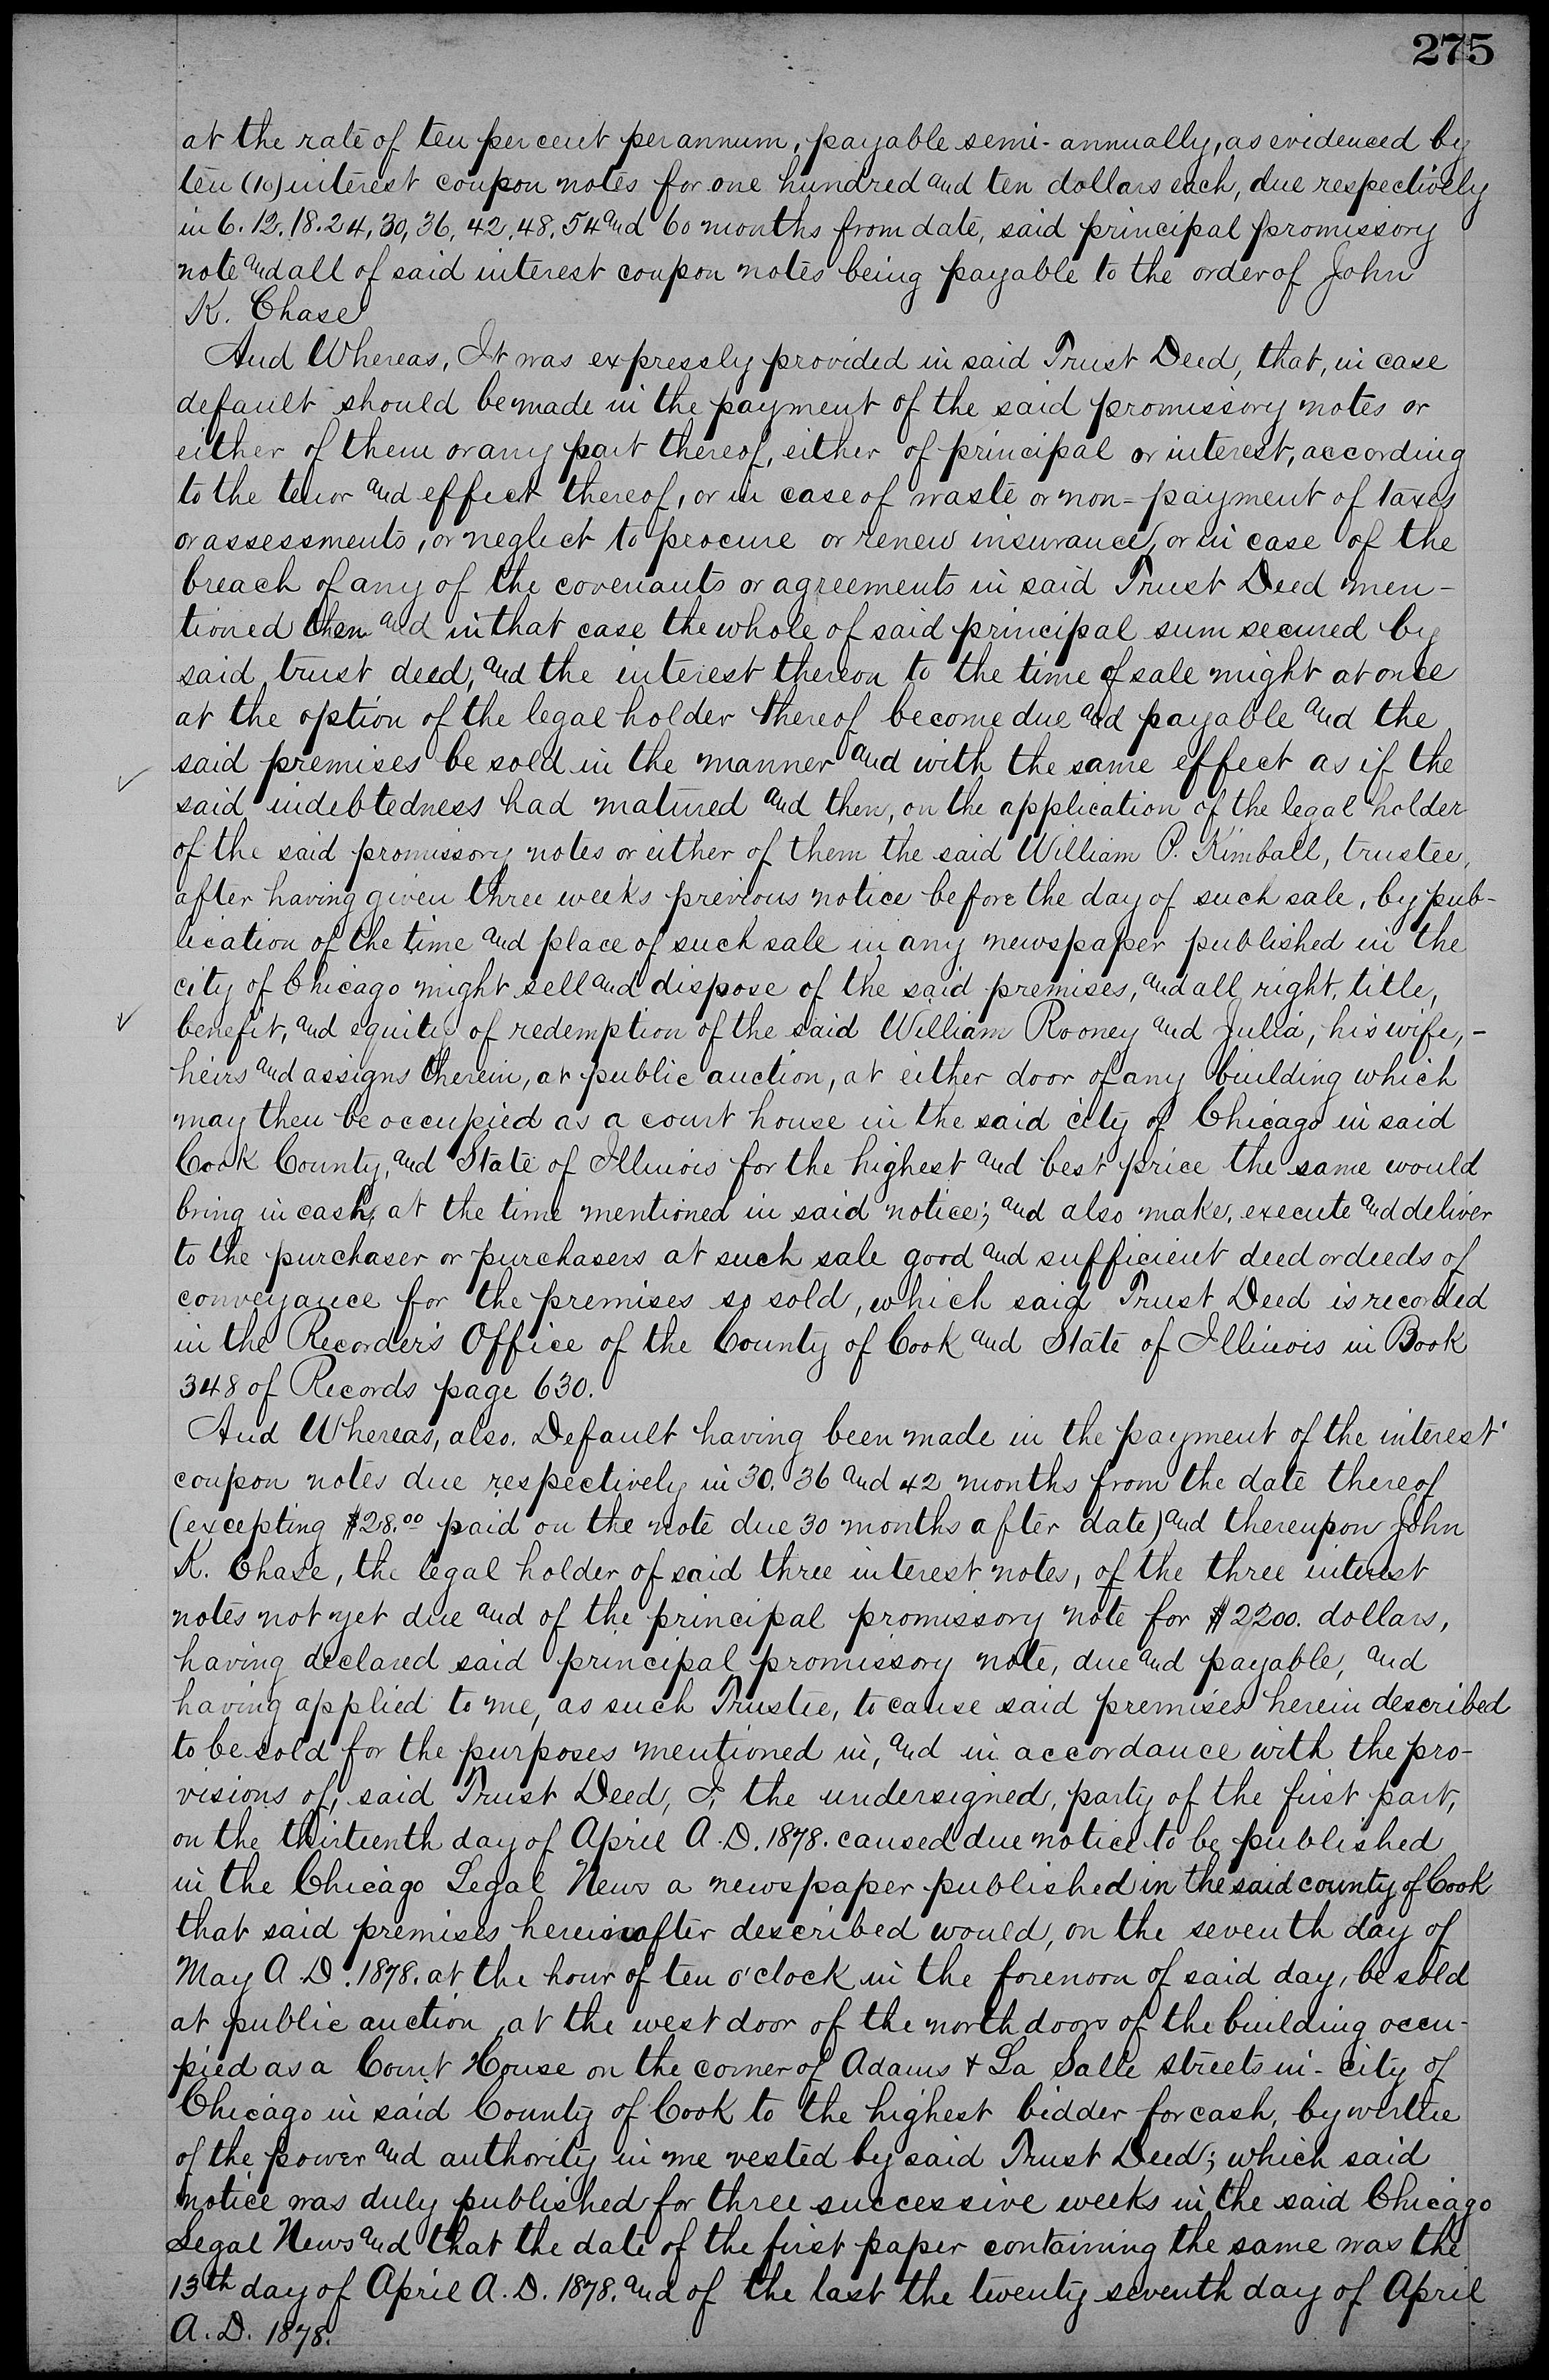 275
at the rate of ten per cent per annum, payable semi-annually, as evidenced by
ten (10) interest coupon notes for one hundred and ten dollars each, due respectively
in 6. 12. 18. 24, 30, 36, 42, 48, 54 and 60 months from date, said principal promissory
note and all of said interest coupon notes being payable to the order of John
K. Chase
And Whereas, It was expressly provided in said Trust Deed, that, in case
default should be made in the payment of the said promissory notes or
either of them or any part thereof, either of principal or interest, according
to the tenor and effect thereof, or in case of waste or non-payment of taxes
or assessments, or neglect to procure or renew insurance, or in case of the
breach of any of the covenants or agreements in said Trust Deed men-
tioned then and in that case the whole of said principal sum secured by
said trust deed, and the interest thereon to the time of sale might at once
at the option of the legal holder thereof become due and payable and the
said premises be sold in the manner and with the same effect as if the
said indebtedness had matured and then, on the application of the legal holder
of the said promissory notes or either of them the said William P. Kimball, trustee,
after having given three weeks previous notice before the day of such sale, by pub-
lication of the time and place of such sale in any newspaper published in the
city of Chicago might sell and dispose of the said premises, and all right, title,
benefit, and equity of redemption of the said William Rooney and Julia, his wife, -
heirs and assigns therein, at public auction, at either door of any building which
may then be occupied as a court house in the said city of Chicago in said
Cook County, and State of Illinois for the highest and best price the same would
bring in cash, at the time mentioned in said notice; and also make, execute and deliver
to the purchaser or purchasers at such sale good and sufficient deed or deeds of
conveyance for the premises so sold, which said Trust Deed is recorded
in the Recorder's Office of the County of Cook and State of Illinois in Book
348 of Records page 630.
And Whereas, also. Default having been made in the payment of the interest
coupon notes due respectively in 30. 36 and 42 months from the date thereof
(excepting $28.00 paid on the note due 30 months after date) and thereupon John
K. Chase, the legal holder of said three interest notes, of the three interest
notes not yet due and of the principal promissory note for $2200. dollars,
having declared said principal promissory note, due and payable, and
having applied to me, as such Trustee, to cause said premises herein described
to be sold for the purposes mentioned in, and in accordance with the pro-
visions of, said Trust Deed, I, the undersigned, party of the first part,
on the thirteenth day of April A.D. 1878. caused due notice to be published
in the Chicago Legal News a newspaper published in the said county of Cook
that said premises hereinafter described would, on the seventh day of
May A.D. 1878. at the hour of ten o'clock in the forenoon of said day, be sold
at public auction, at the west door of the north doors of the building occu-
pied as a Court House on the corner of Adams & La Salle streets in - city of
Chicago in said County of Cook to the highest bidder for cash, by virtue
of the power and authority in me vested by said Trust Deed; which said
notice was duly published for three successive weeks in the said Chicago
Legal News and that the date of the first paper containing the same was the
13th day of April A.D. 1878. and of the last the twenty seventh day of April
A.D. 1878.